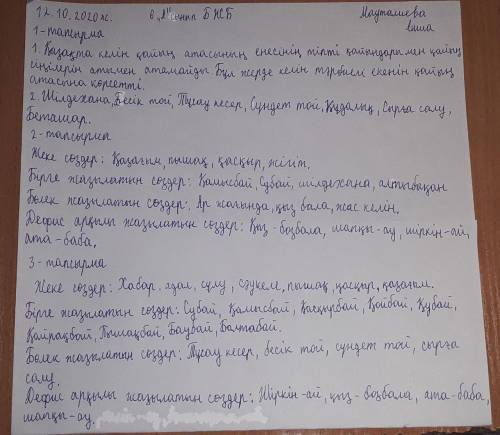 12.10.2020ж. 6 "А" сынып БЖБ Мауташева
1-тапсырма
1. Қазақта келін қайың атасының енесінің тіпті қайындарымен қайың
сіңілерін атымен атамайды. Бұл жерде келін тәрбиелі екенін қайың
атасына көрсетті.
2. Шілдехана, Бесік той, Тұсау кесер, Сүндет той, Құдалық, Сырға салу,
Беташар.
2-тапсырма
Жеке сөздер: Қазағым, пышақ, қасқыр, жігіт.
Бірге жазылатын сөздер: Қамысбай, Субай, шілдехана, алтыбақан
Бөлек жазылатын сөздер: Ар жағында, қыз бала, жас келін.
Дефис арқылы жазылатын сөздер: Қыз-бозбала, шапқы-ау, шіркін-ай,
ата-баба.
3-тапсырма
Жеке сөздер: Хабар, әдал, сұлу, сәукеле, пышақ, қасқыр, қазағым.
Бірге жазылатын сөздер: Субай, Қамысбай, Қасқырбай, Қойбай, Құбай,
Қайрақбай, Пышақбай, Баубай, Балтабай.
Бөлек жазылатын сөздер: Тұсау кесер, бесік той, сүндет той, сырға
салу.
Дефис арқылы жазылатын сөздер: Шіркін-ай, қыз-бозбала, ата-баба,
шапқы-ау.